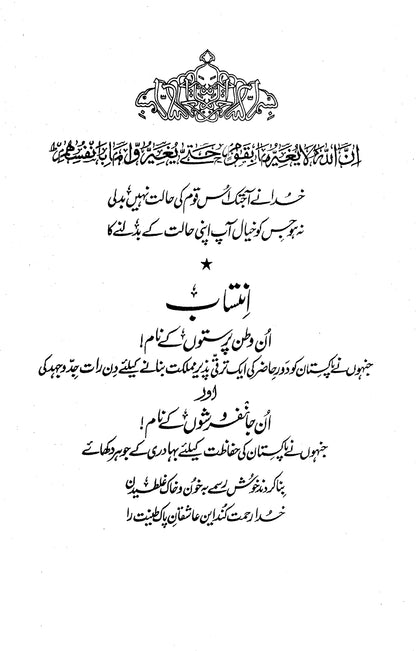 بسم اللہ الرحمن الرحیم
اِنَّ اللّٰہَ لَا یُغَیِّرُ مَا بِقَوْمٍ حَتّٰی یُغَیِّرُوْا مَا بِاَنْفُسِہِمْ
خدا نے آجتک اُس قوم کی حالت نہیں بدلی
نہ ہو جس کو خیال آپ اپنی حالت کے بدلنے کا
★
اِنتساب
اُن وطن پرستوں کے نام!
جنہوں نے پاکستان کو دَورِ حاضر کی ایک ترقی پذیر مملکت بنانے کیلئے دِن رات جِدّ و جہد کی
اور
اُن جانفروشوں کے نام!
جنہوں نے پاکستان کی حفاظت کیلئے بہادری کے جوہر دکھائے
بنا کردند خوش رسمے بہ خون و خاک غلطیدن
خدا رحمت کند این عاشقانِ پاک طینت را